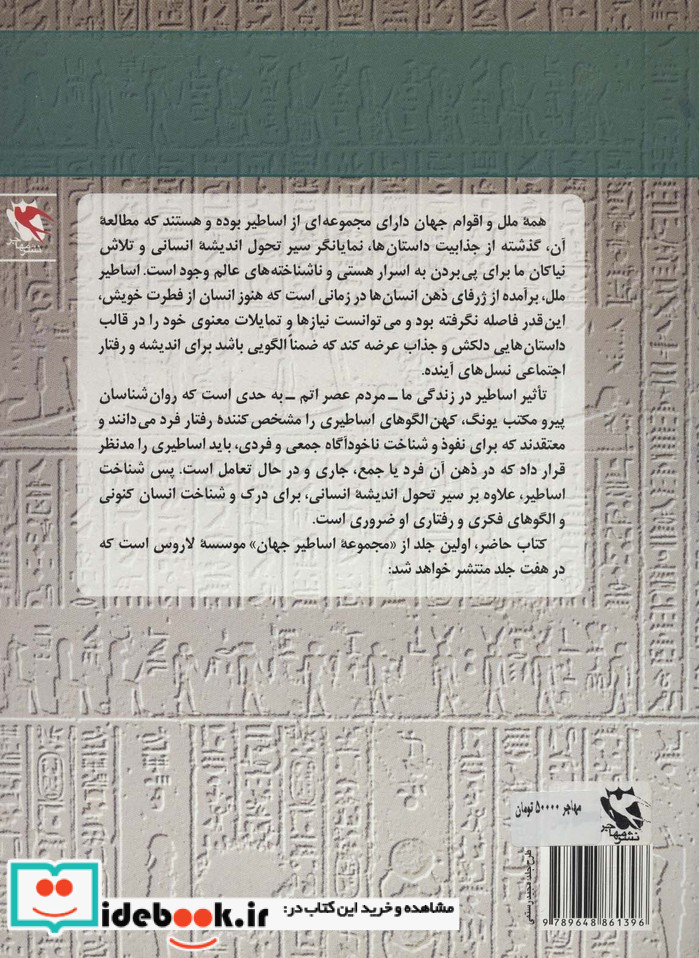 نشر مهاجر
همهٔ ملل و اقوام جهان دارای مجموعه‌ای از اساطیر بوده و هستند که مطالعهٔ
آن، گذشته از جذابیت داستان‌ها، نمایانگر سیر تحول اندیشهٔ انسانی و تلاش
نیاکان ما برای پی‌بردن به اسرار هستی و ناشناخته‌های عالم وجود است. اساطیر
ملل، برآمده از ژرفای ذهن انسان‌ها در زمانی است که هنوز انسان از فطرت خویش،
این‌قدر فاصله نگرفته بود و می‌توانست نیازها و تمایلات معنوی خود را در قالب
داستان‌هایی دلکش و جذاب عرضه کند که ضمناً الگویی باشد برای اندیشه و رفتار
اجتماعی نسل‌های آینده.
تأثیر اساطیر در زندگی ما ـ مردم عصر اتم ـ به حدی است که روان‌شناسان
پیرو مکتب یونگ، کهن‌الگوهای اساطیری را مشخص کنندهٔ رفتار فرد می‌دانند و
معتقدند که برای نفوذ و شناخت ناخودآگاه جمعی و فردی، باید اساطیری را مدنظر
قرار داد که در ذهن آن فرد یا جمع، جاری و در حال تعامل است. پس شناخت
اساطیر، علاوه بر سیر تحول اندیشهٔ انسانی، برای درک و شناخت انسان کنونی
و الگوهای فکری و رفتاری او ضروری است.
کتاب حاضر، اولین جلد از «مجموعهٔ اساطیر جهان» موسسهٔ لاروس است که
در هفت جلد منتشر خواهد شد:
مهاجر ۵۰۰۰۰ تومان
نشر مهاجر
طرح جلد: مجید رستمی
9 789648 861396
مشاهده و خرید این کتاب در:
idebook.ir